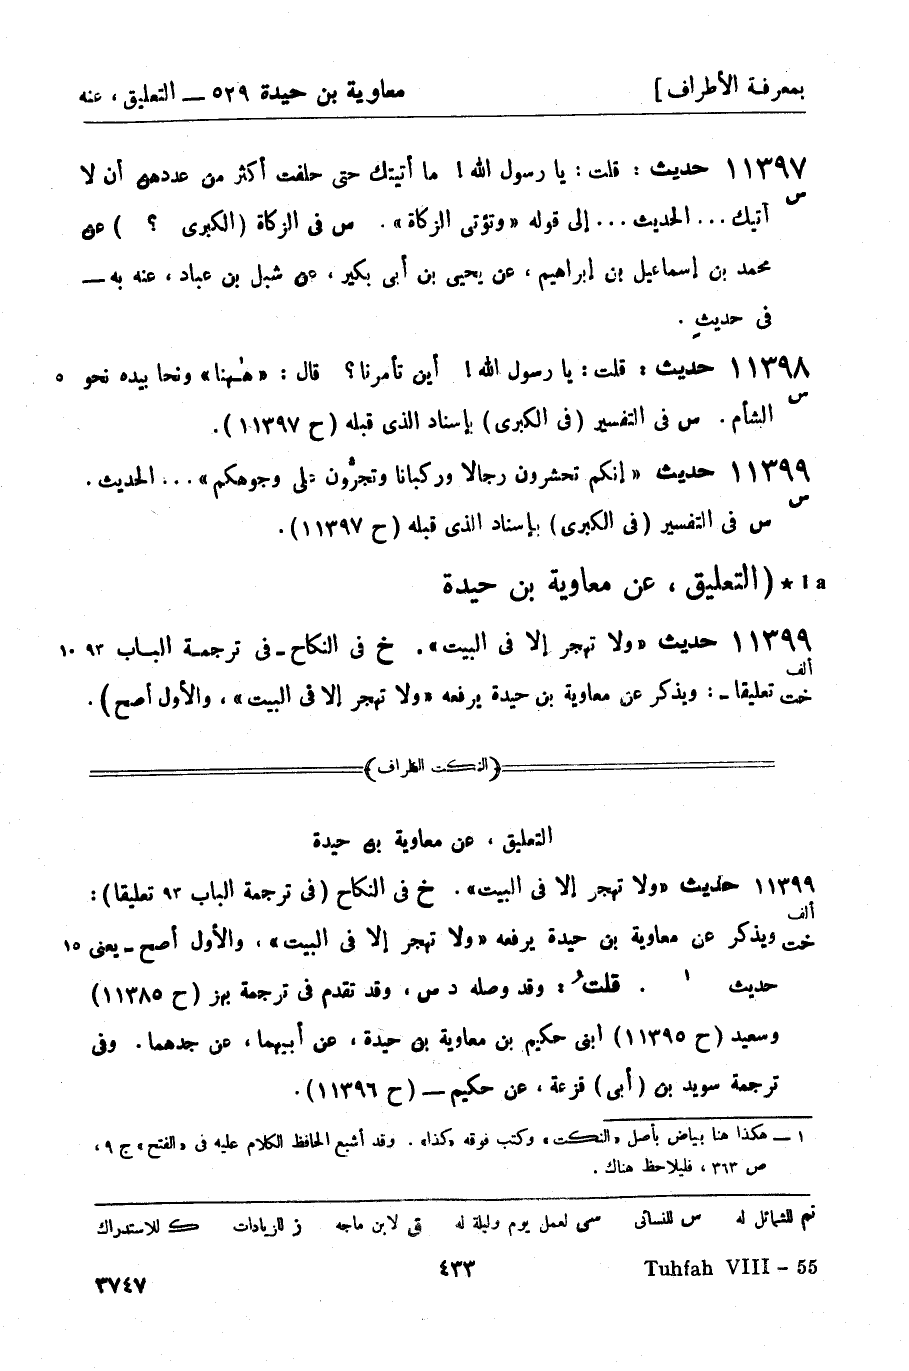 بمعرفة الأطراف ] معاوية بن حيدة ٥٢٩ — التعليق ، عنه
١١٣٩٧ حديث : قلت : يا رسول الله ! ما أتيتك حتى حلفت أكثر من عددهن أن لا
س آتيك ... الحديث ... إلى قوله «وتؤتى الزكاة» . س فى الزكاة (الكبرى ؟ ) عن
محمد بن إسماعيل بن إبراهيم ، عن يحيى بن أبى بكير ، عن شبل بن عباد ، عنه به —
فى حديثٍ .
١١٣٩٨ حديث : قلت : يا رسول الله ! أين تأمرنا ؟ قال : «هٰهنا» ونحا بيده نحو ٥
س الشأم . س فى التفسير (فى الكبرى) بإسناد الذى قبله (ح ١١٣٩٧) .
١١٣٩٩ حديث «إنكم تحشرون رجالا وركبانا وتجرُّون على وجوهكم» ... الحديث .
س س فى التفسير (فى الكبرى) بإسناد الذى قبله (ح ١١٣٩٧) .
1a * (التعليق ، عن معاوية بن حيدة
١١٣٩٩ حديث «ولا تهجر إلا فى البيت» . خ فى النكاح - فى ترجمة الباب ٩٣ ١٠
ألف
خت تعليقا - : ويذكر عن معاوية بن حيدة يرفعه «ولا تهجر إلا فى البيت» ، والأول أصح) .
(النكت الظراف)
التعليق ، عن معاوية بن حيدة
١١٣٩٩ حديث «ولا تهجر إلا فى البيت» . خ فى النكاح (فى ترجمة الباب ٩٣ تعليقا) :
ألف
خت ويذكر عن معاوية بن حيدة يرفعه «ولا تهجر إلا فى البيت» ، والأول أصح - يعنى ١٥
حديث ١ . قلتُ : وقد وصله د س ، وقد تقدم فى ترجمة بهز (ح ١١٣٨٥)
وسعيد (ح ١١٣٩٥) ابنى حكيم بن معاوية بن حيدة ، عن أبيهما ، عن جدهما . وفى
ترجمة سويد بن (أبى) قزعة ، عن حكيم — (ح ١١٣٩٦) .
١ — هكذا هنا بياض بأصل «النكت» وكتب فوقه «كذا» . وقد أشبع الحافظ الكلام عليه فى «الفتح» ج ٩ ،
ص ٣٦٣ ، فليلاحظ هناك .
تم للشمائل له س للنسائى سى لعمل يوم وليلة له ق لابن ماجه ز للزيادات ك للاستدراك
Tuhfah VIII – 55 ٤٣٣ ٣٧٤٧